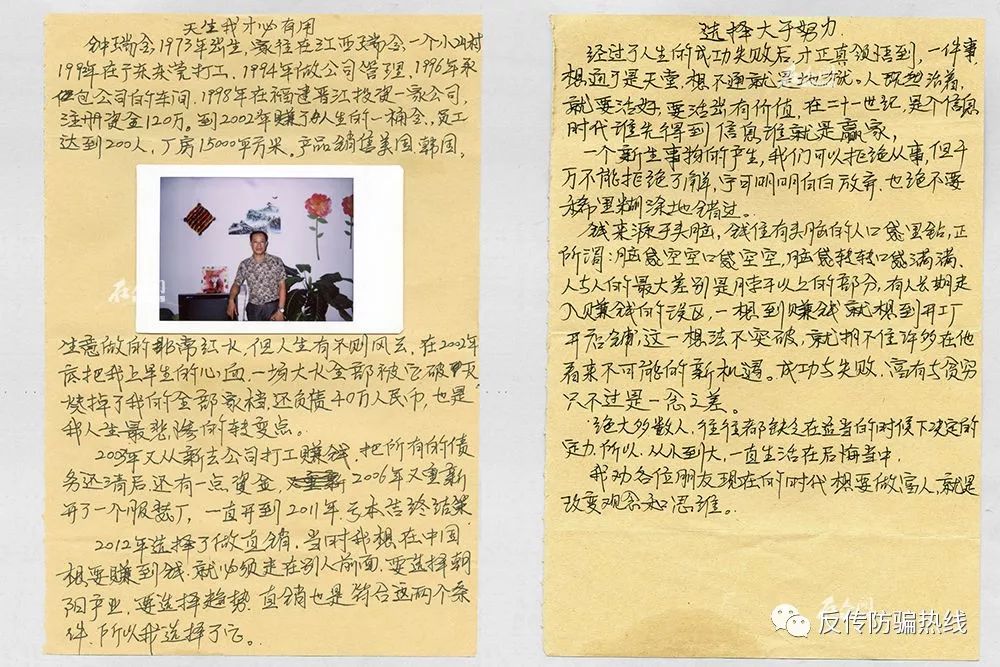 天生我才必有用
钟瑞金,1973年出生,家住在江西瑞金,一个小山村
1991年在广东东莞打工,1994年做公司管理,1996年承
包公司的车间,1998年在福建晋江投资一家公司,
注册资金120万。到2002年赚了人生的一桶金,员工
达到200人,厂房15000平方米。产品销售美国,韩国,
生意做的非常红火,但人生有不则风云,在2002年
底把我上半生的心血,一场大火全部被它破灭
烧掉了我的全部家档,还负债40万人民币,也是
我人生最悲惨的转变点。
2003年又从新去公司打工赚钱,把所有的债
务还清后,还有一点资金,2006年又重新
开了一个服装厂,一直开到2011年,亏本告终结束
2012年选择了做直销,当时我想,在中国
想要赚到钱,就必须走在别人前面,要选择朝
阳产业,要选择趋势,直销也是符合这两个条
件,所以我选择了它。
选择大于努力
经过了人生的成功失败后才正真领悟到,一件事
想通了是天堂,想不通就是地狱。人既然活着,
就要活好,要活出有价值,在二十一世纪,是个信息
时代谁先得到信息谁就是赢家,
一个新生事物的产生,我们可以拒绝从事,但千
万不能拒绝了解,宁可明明白白放弃,也绝不要
稀里糊涂地错过。
钱来源于头脑,钱往有头脑的人口袋里钻,正
所谓:脑袋空空口袋空空,脑袋转转口袋满满、
人与人的最大差别是脖子以上的部分,有人长期走
入赚钱的误区,一想到赚钱就想到开工厂
开店铺,这一想法不突破,就抓不住许多在他
看来不可能的新机遇。成功与失败,富有与贫穷
只不过是一念之差。
绝大多数人,往往都缺乏在适当的时候下决定的
定力,所以,从小到大,一直生活在后悔当中,
我劝各位朋友现在的时代想要做富人,就是
改变观念和思维。
反传防骗热线